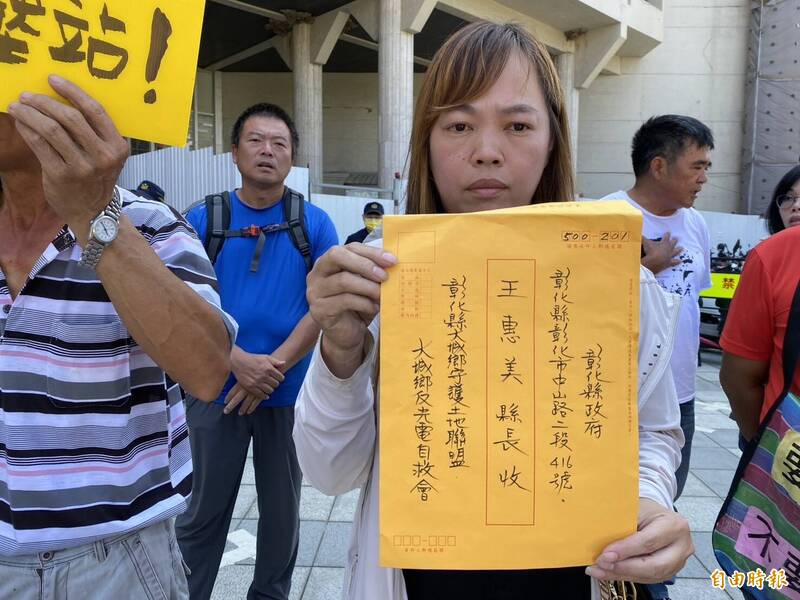 壓站!
500-201
彰化縣政府
彰化縣彰化市中山路二段416號.
王惠美縣長收
彰化縣大城鄉守護土地聯盟
大城鄉反光電自救會
禁
不
自由時報